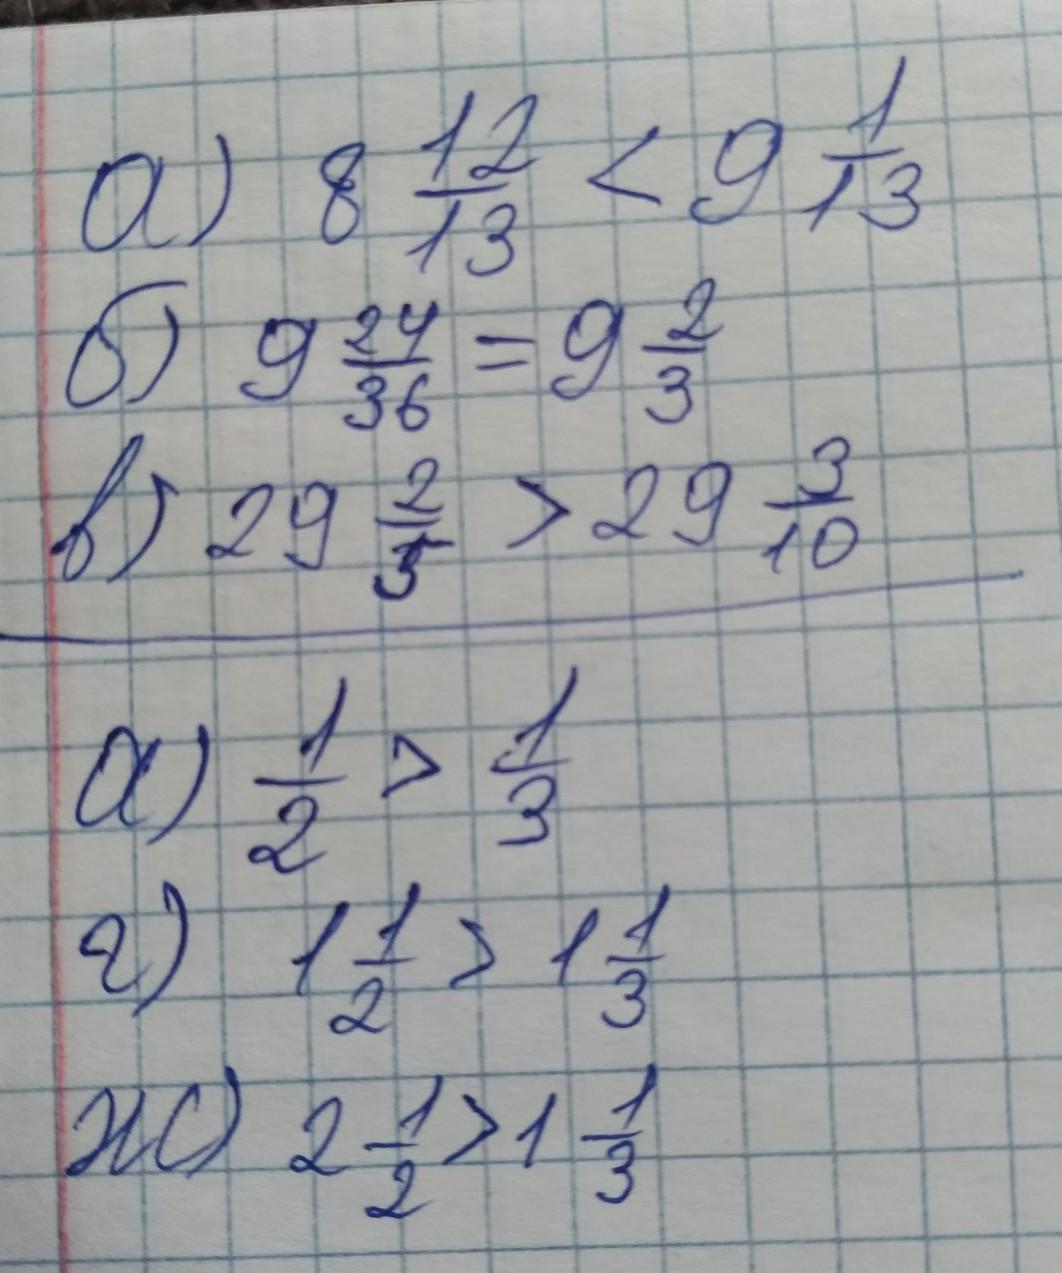 а) 8 12/13 < 9 1/13
б) 9 24/36 = 9 2/3
в) 29 2/5 > 29 3/10
а) 1/2 > 1/3
г) 1 1/2 > 1 1/3
ж) 2 1/2 > 1 1/3